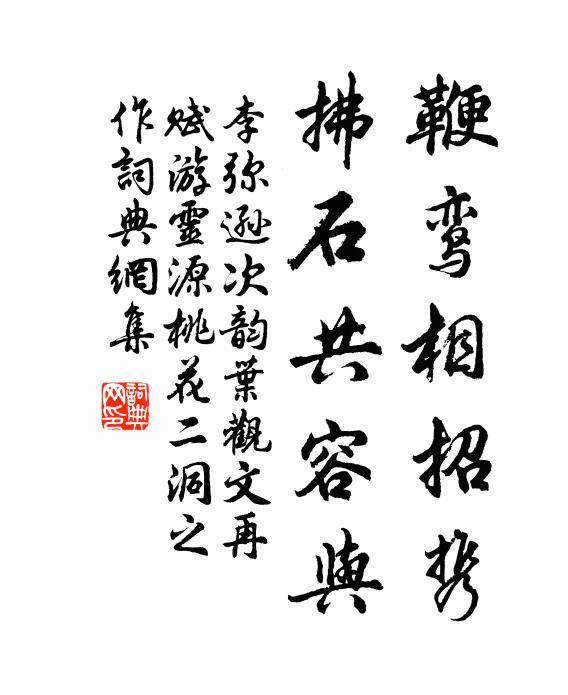 鞭鸾相招携
拂石共容與
李弥遜次韵葉觀文再
赋游靈源桃花二洞之
作詞典網集
詞典網印